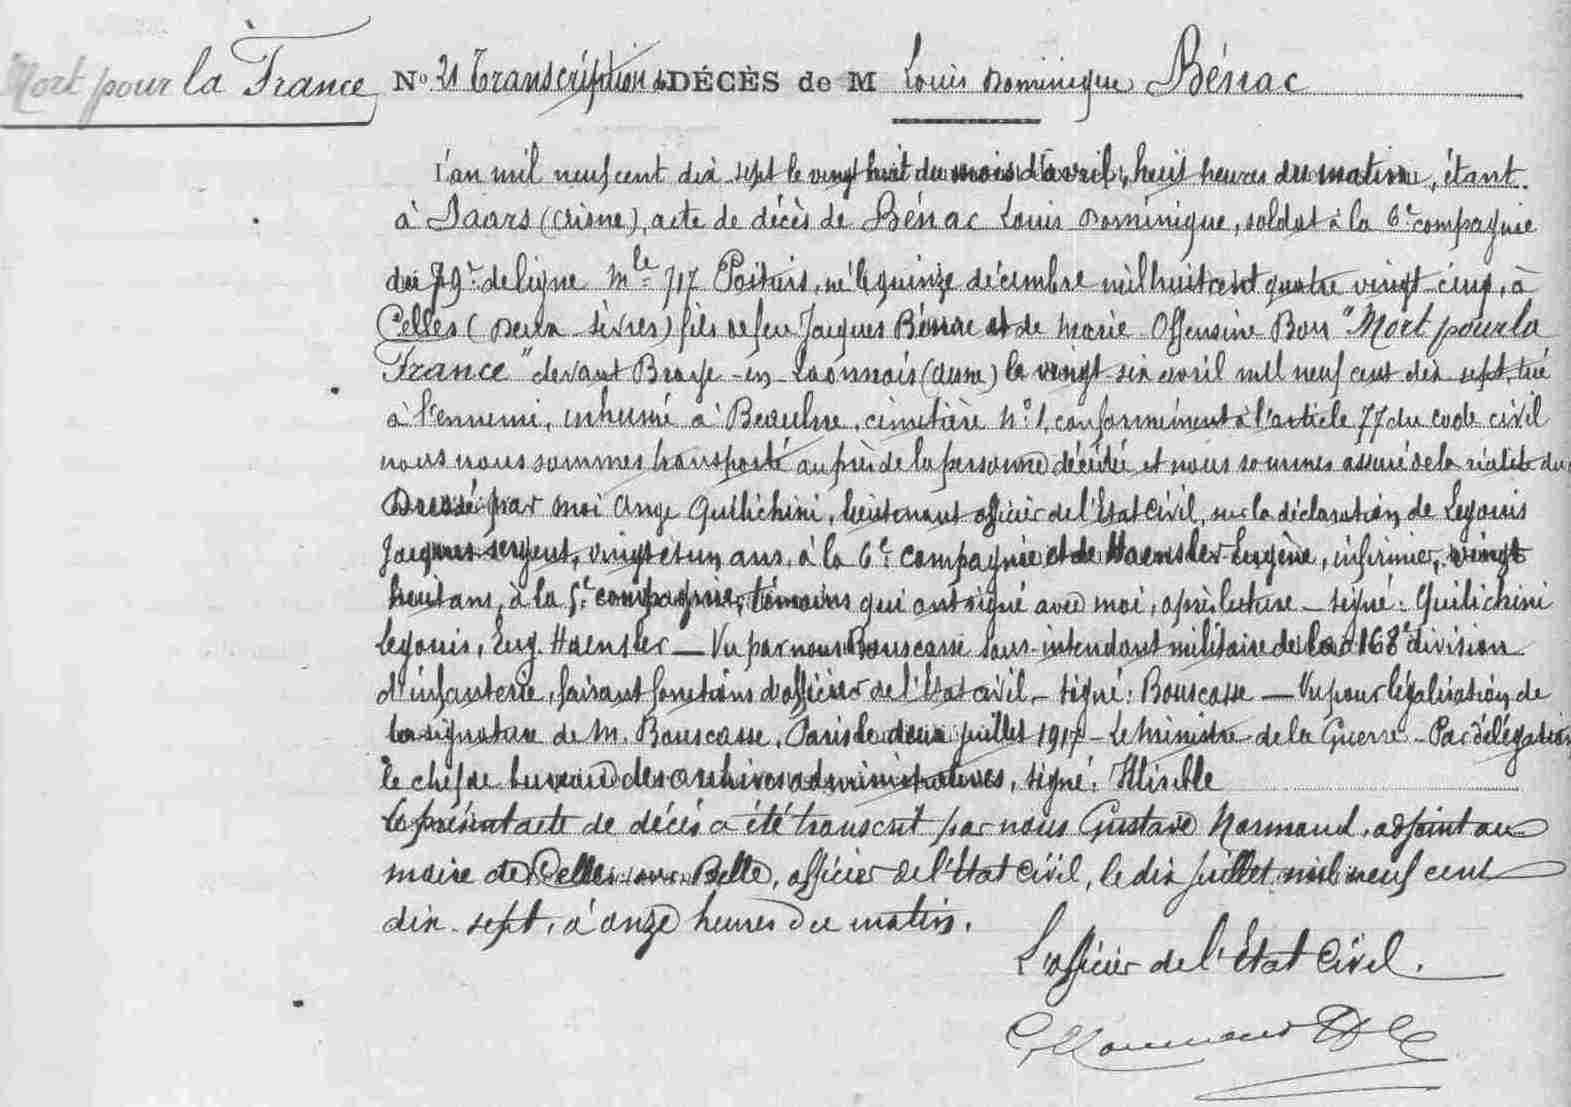 Mort pour la France
No 21 Transcription de DÉCÈS de M Louis Dominique Bénac
L'an mil neuf cent dix-sept le vingt huit du mois d'avril, huit heures du matin, étant
à Paars (Aisne), acte de décès de Bénac Louis Dominique, soldat à la 6e compagnie
du 79e de ligne Mle 717 Poitiers, né le quinze décembre mil huit cent quatre vingt-cinq, à
Celles (Deux-Sèvres) fils de feu Jacques Bénac et de Marie Offensine Bon "Mort pour la
France" devant Braye-en-Laonnois (Aisne) le vingt-six avril mil neuf cent dix sept, tué
à l'ennemi, inhumé à Beaulne, cimetière no 1, conformément à l'article 77 du code civil
nous nous sommes transporté auprès de la personne décédée et nous sommes assuré de la réalité du
Dressé par moi Ange Quilichini, lieutenant officier de l'Etat Civil, sur la déclaration de Legouis
Jacques sergent, vingt et un ans, à la 6e compagnie et de Haensler Eugène, infirmier, vingt
huit ans, à la 5e compagnie, témoins qui ont signé avec moi, après lecture - signé: Quilichini
Legouis, Eug. Haensler — Vu par nous Bouscasse sous-intendant militaire de la 168e division
d'infanterie, faisant fonctions d'officier de l'Etat civil - signé: Bouscasse — Vu pour légalisation de
la signature de M. Bouscasse, Paris le deux juillet 1917 - Le Ministre de la Guerre - Par délégation
le chef de bureau des archives administratives, signé:
Le présent acte de décès a été transcrit par nous Gustave Normand, adjoint au
maire de Celles-sur-Belle, officier de l'Etat Civil, le dix juillet mil neuf cent
dix-sept, à onze heures du matin.
L'officier de l'Etat Civil.
G Normand